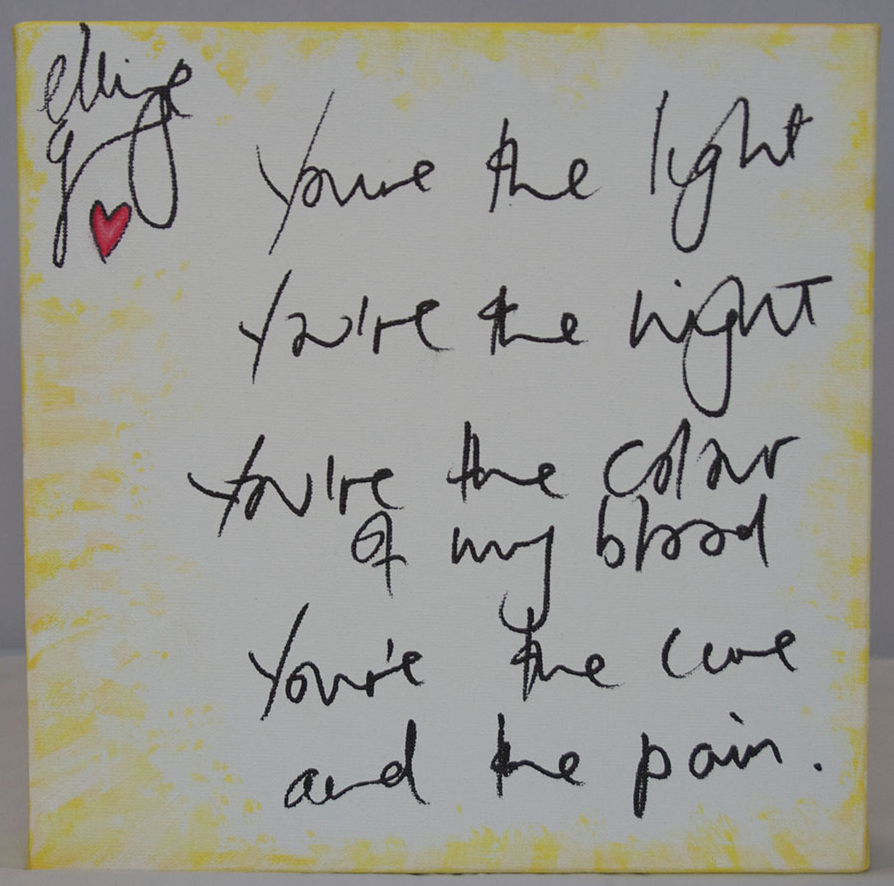 ellie
g
You're the light
You're the night
You're the colour
of my blood
You're the cure
and the pain.